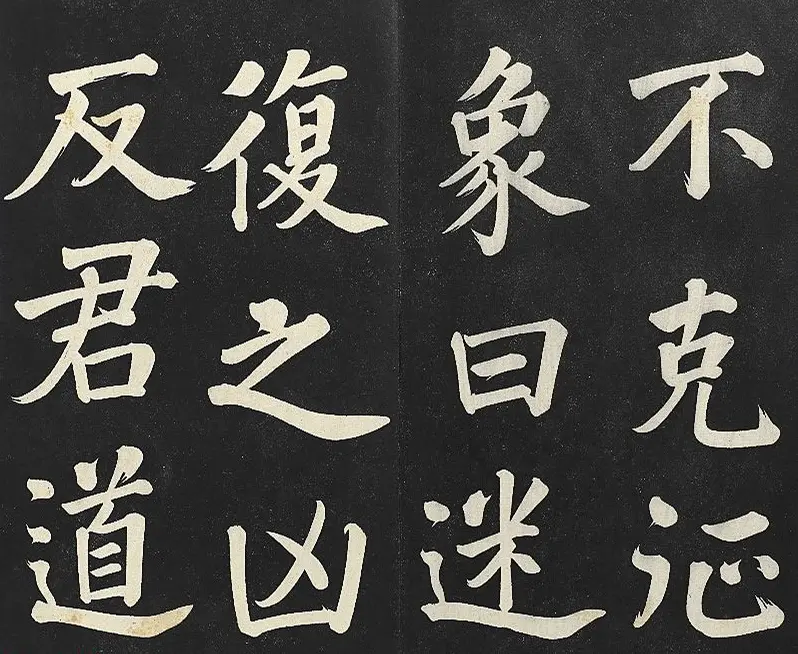 不克征
象曰迷
復之凶
反君道